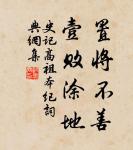 置將不善
壹敗涂地
史記高祖本紀詞
典網集